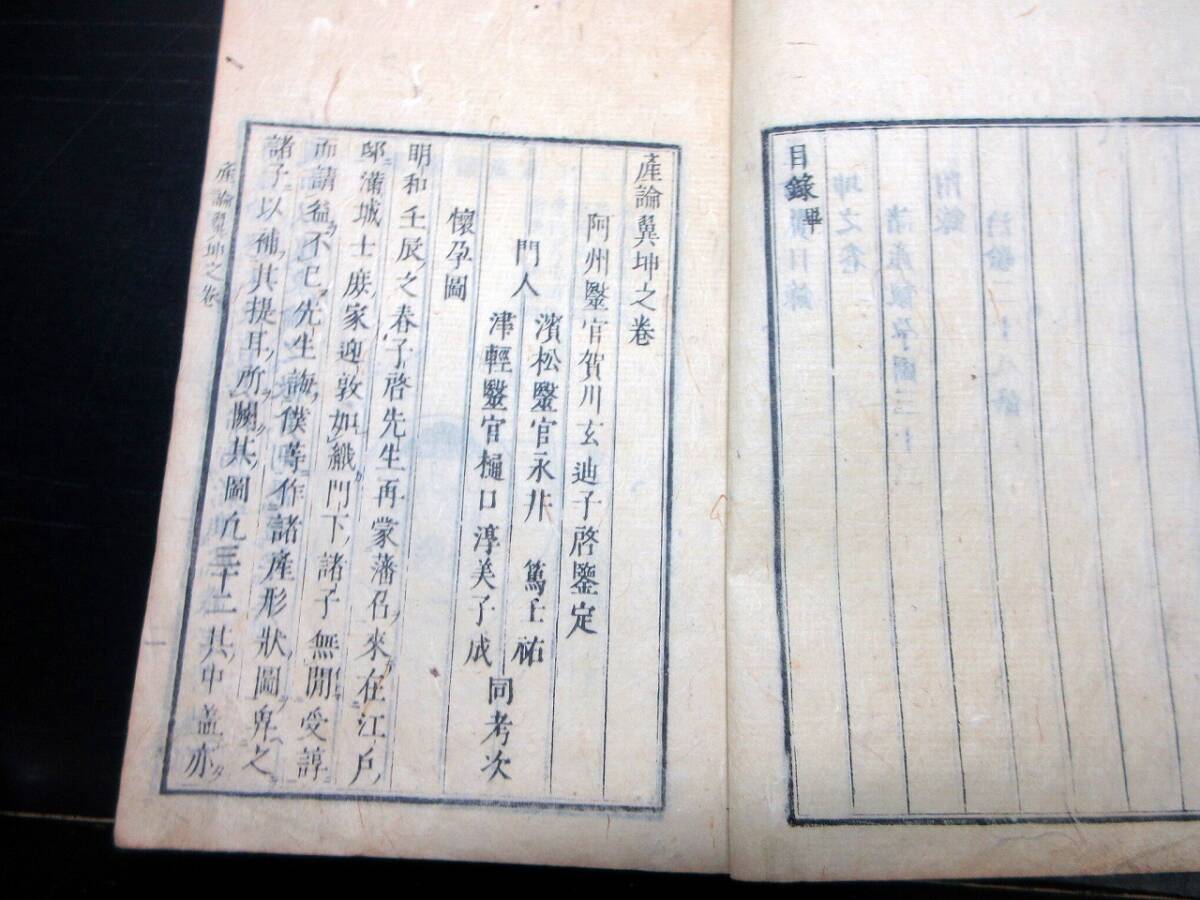 目錄畢
產論翼坤之卷
阿州醫官賀川玄迪子啓鑒定
門人
濱松醫官永井 篤士祐
津輕醫官樋口淳美子成
同考次
懷孕圖
明和壬辰ノ之春子啓先生再蒙藩召ノ來在江戶ノ
邸滿城士庶家迎敦如織門下ノ諸子無間受諄
而請益不已先生誨僕等作諸產形狀圖卑之
諸子以補其提耳ノ所闕其圖凡三十二其中蓋亦
產論翼坤之卷
一